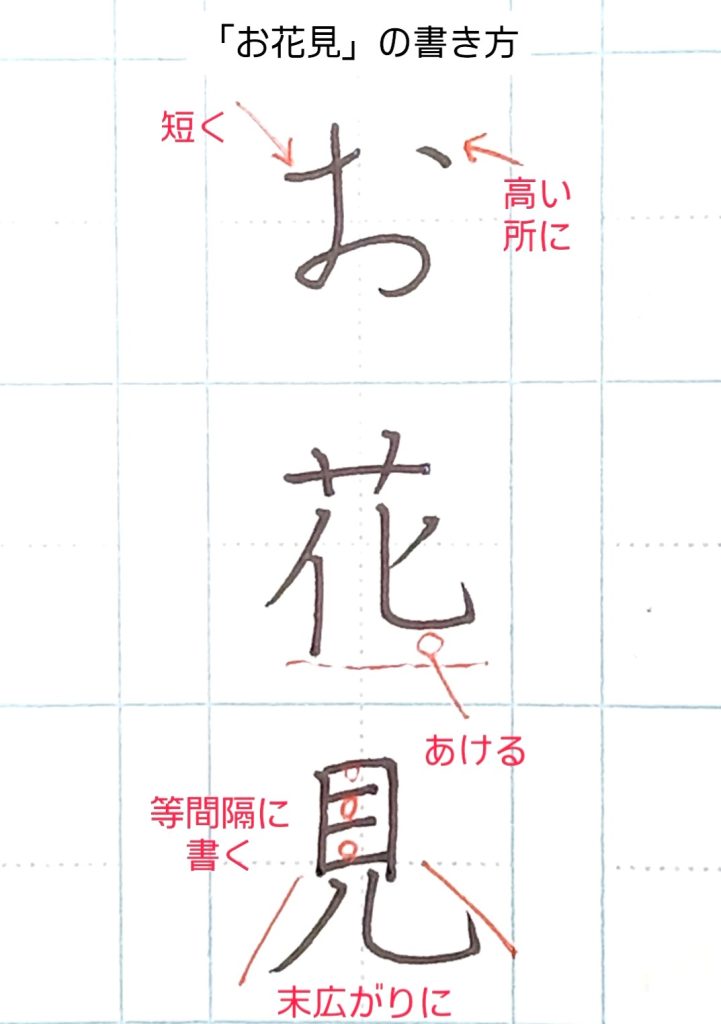 「お花見」の書き方
短く
お
高い
所に
花
あける
見
等間隔に
書く
末広がりに